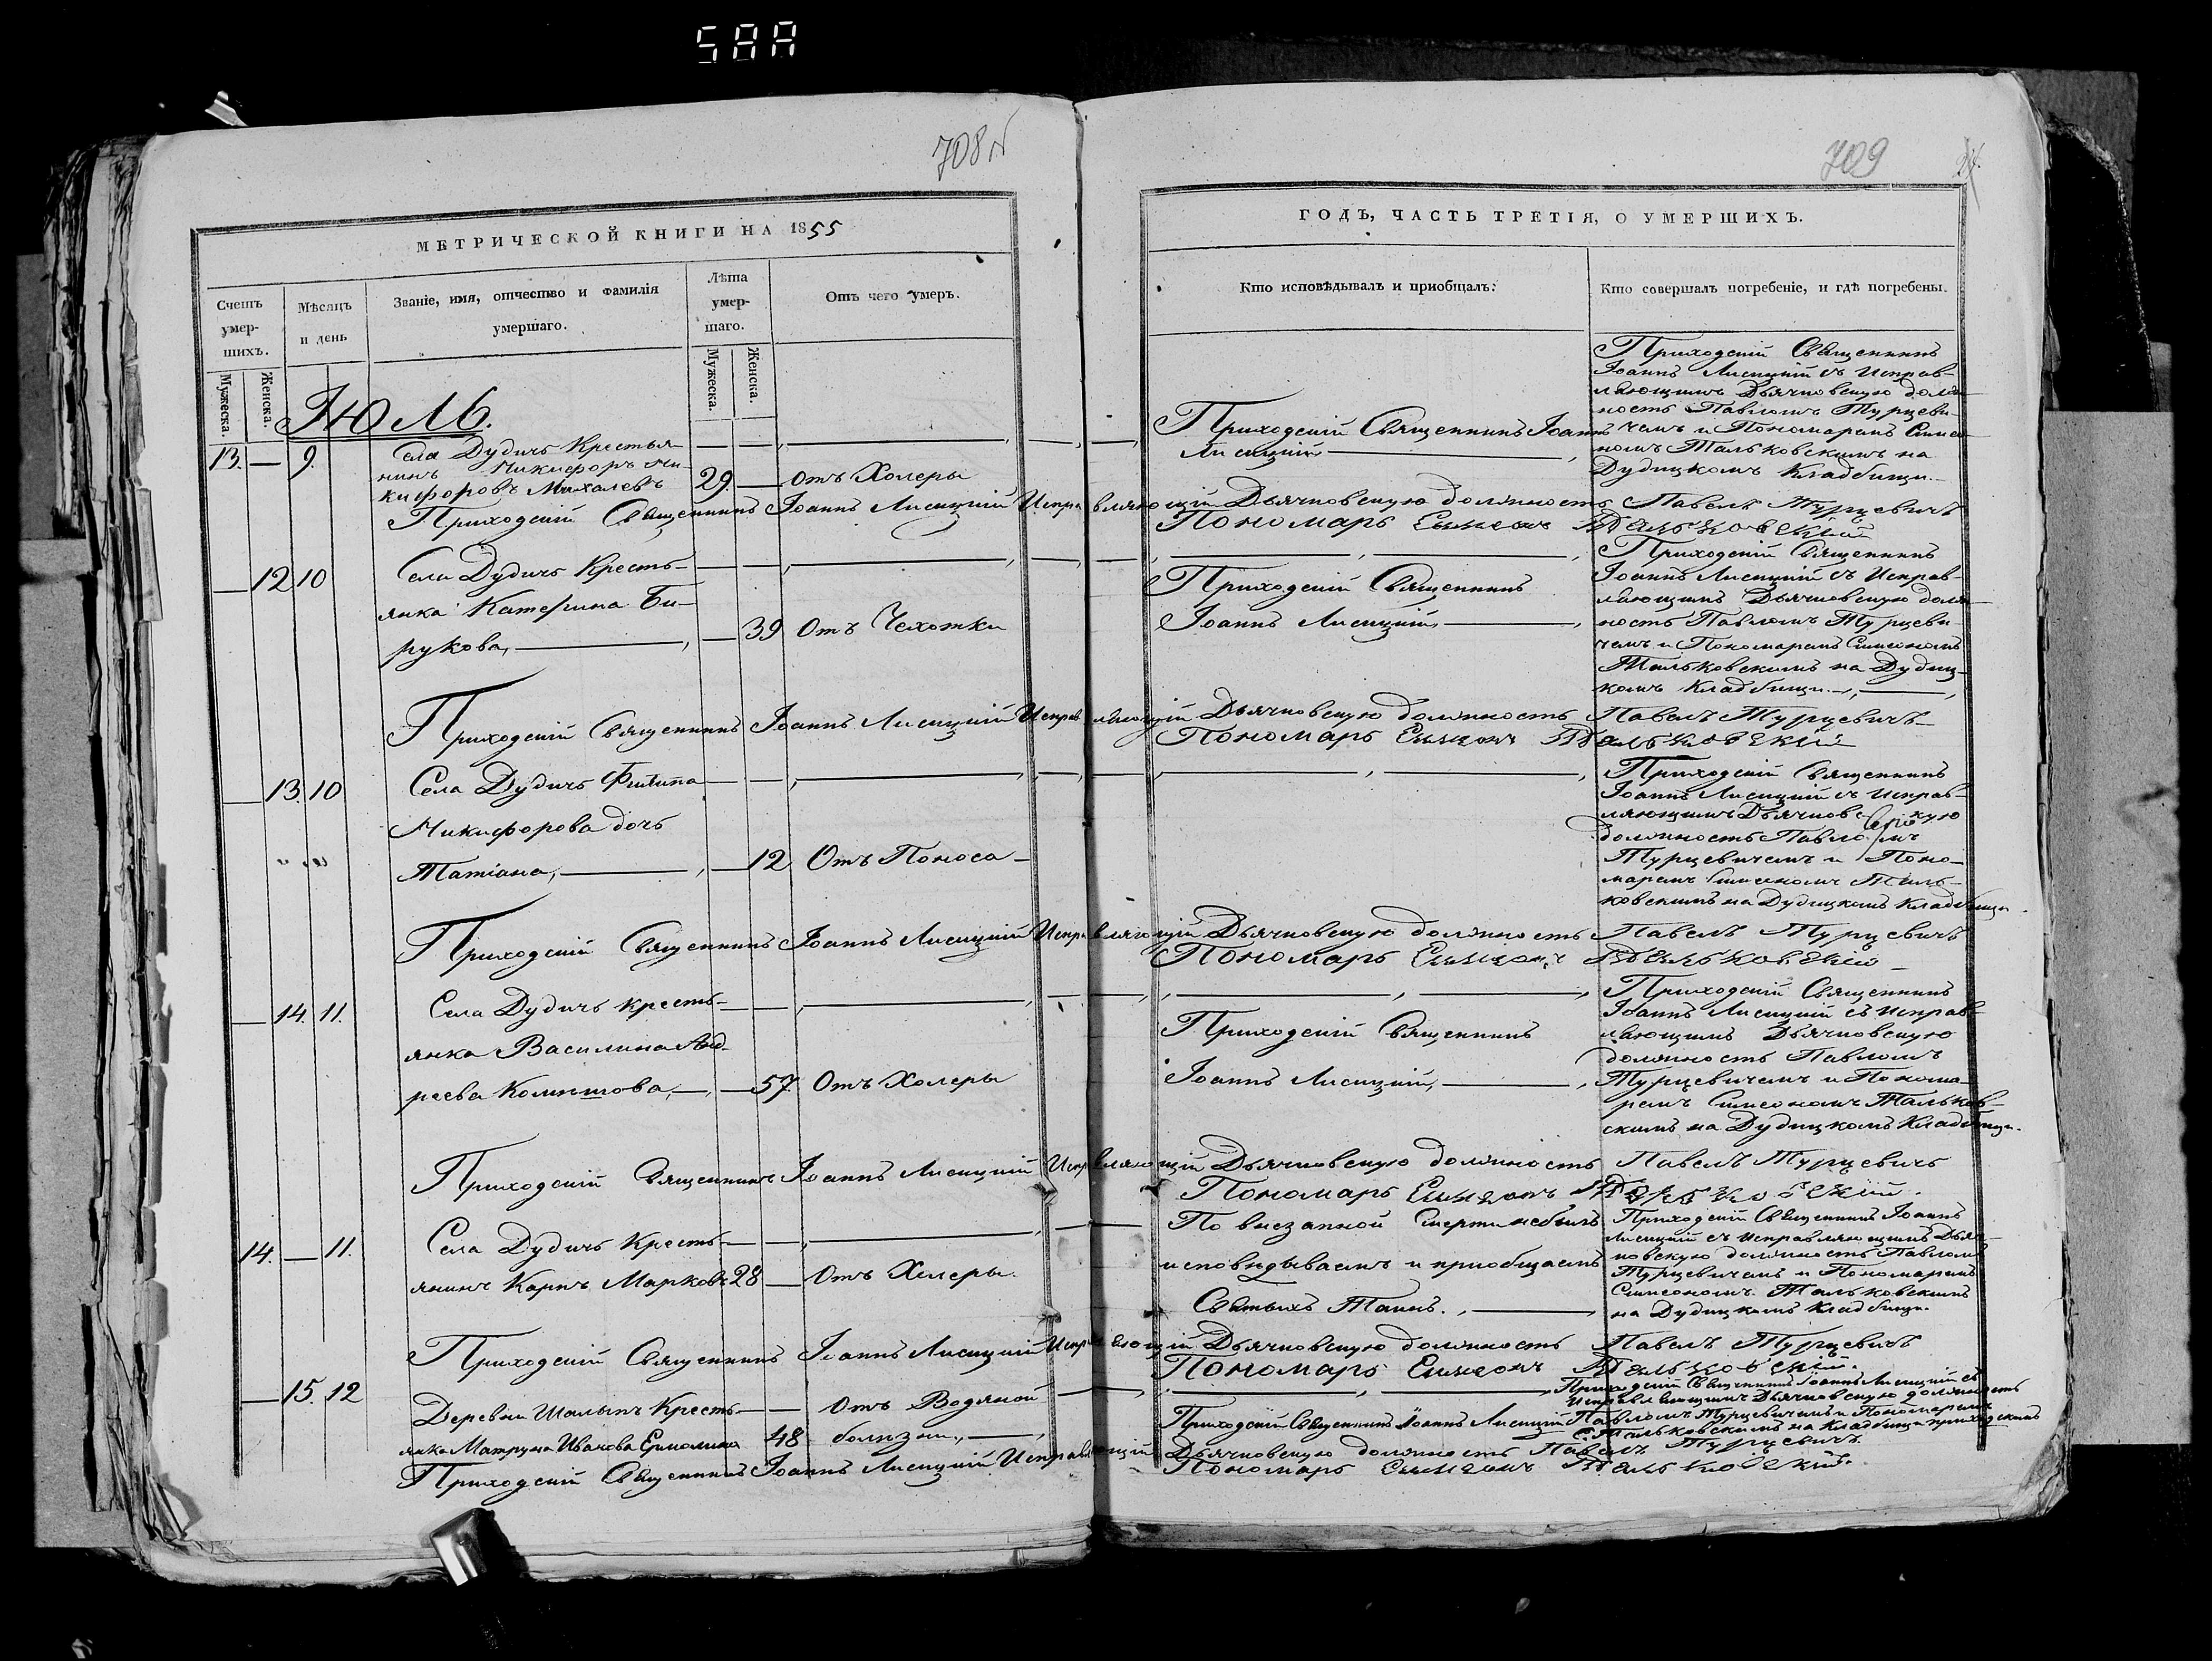 708 об
709
МЕТРИЧЕСКОЙ КНИГИ НА 1855
ГОДЪ, ЧАСТЬ ТРЕТІЯ, О УМЕРШИХЪ.
Счетъ умер-шихъ.
Мѣсяцъ и день
Званіе, имя, отчество и фамилія умершаго.
Лѣта умер-шаго.
Отъ чего умеръ.
Кто исповѣдывалъ и пріобщалъ:
Кто совершалъ погребеніе, и гдѣ погребены.
Мужеска.
Женска.
Мужеска.
Женска.
Іюль.
13. — 9.
Села Дудичь Крестья-
нинъ Никифоръ Ни-
кифоровъ Михалевъ
29.
отъ Холеры
Приходскій Священникъ Іоаннъ
Лисицкій
Приходскій Священникъ
Іоаннъ Лисицкій съ Исправ-
ляющимъ Дьячковскую долж-
ность Павломъ Турцеви-
чемъ и Пономаремъ Симео-
номъ Тальковскимъ на
Дудицкомъ Кладбищи.
Приходскій Священникъ Іоаннъ Лисицкій Исправляющій Дьячковскую должность Павелъ Турцевичъ
Пономарь Симеонъ Тальковскій
— 12 10
Села Дудичь Кресть-
янка Катерина Би-
рукова,
39
Отъ Чехотки
Приходскій Священникъ
Іоаннъ Лисицкій,
Приходскій Священникъ
Іоаннъ Лисицкій съ Исправ-
ляющимъ Дьячковскую долж-
ность Павломъ Турцеви-
чемъ и Пономаремъ Симеономъ
Тальковскимъ на Дудиц-
комъ Кладбищи.
Приходскій Священникъ Іоаннъ Лисицкій Исправляющій Дьячковскую должность Павелъ Турцевичъ
Пономарь Симеонъ Тальковскій
— 13. 10
Села Дудичь
Никифорова дочь
Татіана,
12
Отъ Поноса
Приходскій Священникъ
Іоаннъ Лисицкій съ Исправ-
ляющимъ Дьячковскую
должность Павломъ
Турцевичемъ и Поно-
маремъ Симеономъ Таль-
ковскимъ на Дудицкомъ Кладбищи.
Приходскій Священникъ Іоаннъ Лисицкій Исправляющій Дьячковскую должность Павелъ Турцевичъ
Пономарь Симеонъ Тальковскій
— 14. 11.
Села Дудичь кресть-
янка Василина Анд-
реева
57.
Отъ Холеры
Приходскій Священникъ
Іоаннъ Лисицкій,
Приходскій Священникъ
Іоаннъ Лисицкій съ Исправ-
ляющимъ Дьячковскую
должность Павломъ
Турцевичемъ и Понома-
ремъ Симеономъ Тальков-
скимъ на Дудицкомъ Кладбищи.
Приходскій Священникъ Іоаннъ Лисицкій Исправляющій Дьячковскую должность Павелъ Турцевичъ
Пономарь Симеонъ Тальковскій.
14. — 11.
Села Дудичь Кресть-
янинъ Карпъ Марковъ
28
Отъ Холеры.
По внезапной Смерти небылъ
исповѣдываемъ и приобщаемъ
Святыхъ Таинъ.
Приходскій Священникъ Іоаннъ
Лисицкій съ Исправляющимъ Дьяч-
ковскую должность Павломъ
Турцевичемъ и Пономаремъ
Симеономъ Тальковскимъ
на Дудицкомъ Кладбищи.
Приходскій Священникъ Іоаннъ Лисицкій Исправляющій Дьячковскую должность Павелъ Турцевичъ
Пономарь Симеонъ Тальковскій.
— 15. 12
Деревни Шалыпъ Кресть-
янка Матруна Иванова Ермолина
48
Отъ Водяной
болѣзни,
Приходскій Священникъ Іоаннъ Лисицкій
Приходскій Священникъ Іоаннъ Лисицкій съ
Исправляющимъ Дьячковскую должность
Павломъ Турцевичемъ и Пономаремъ
С. Тальковскимъ на Кладбищи приходскимъ
Приходскій Священникъ Іоаннъ Лисицкій Исправляющій Дьячковскую должность Павелъ Турцевичъ.
Пономарь Симеонъ Тальковскій.